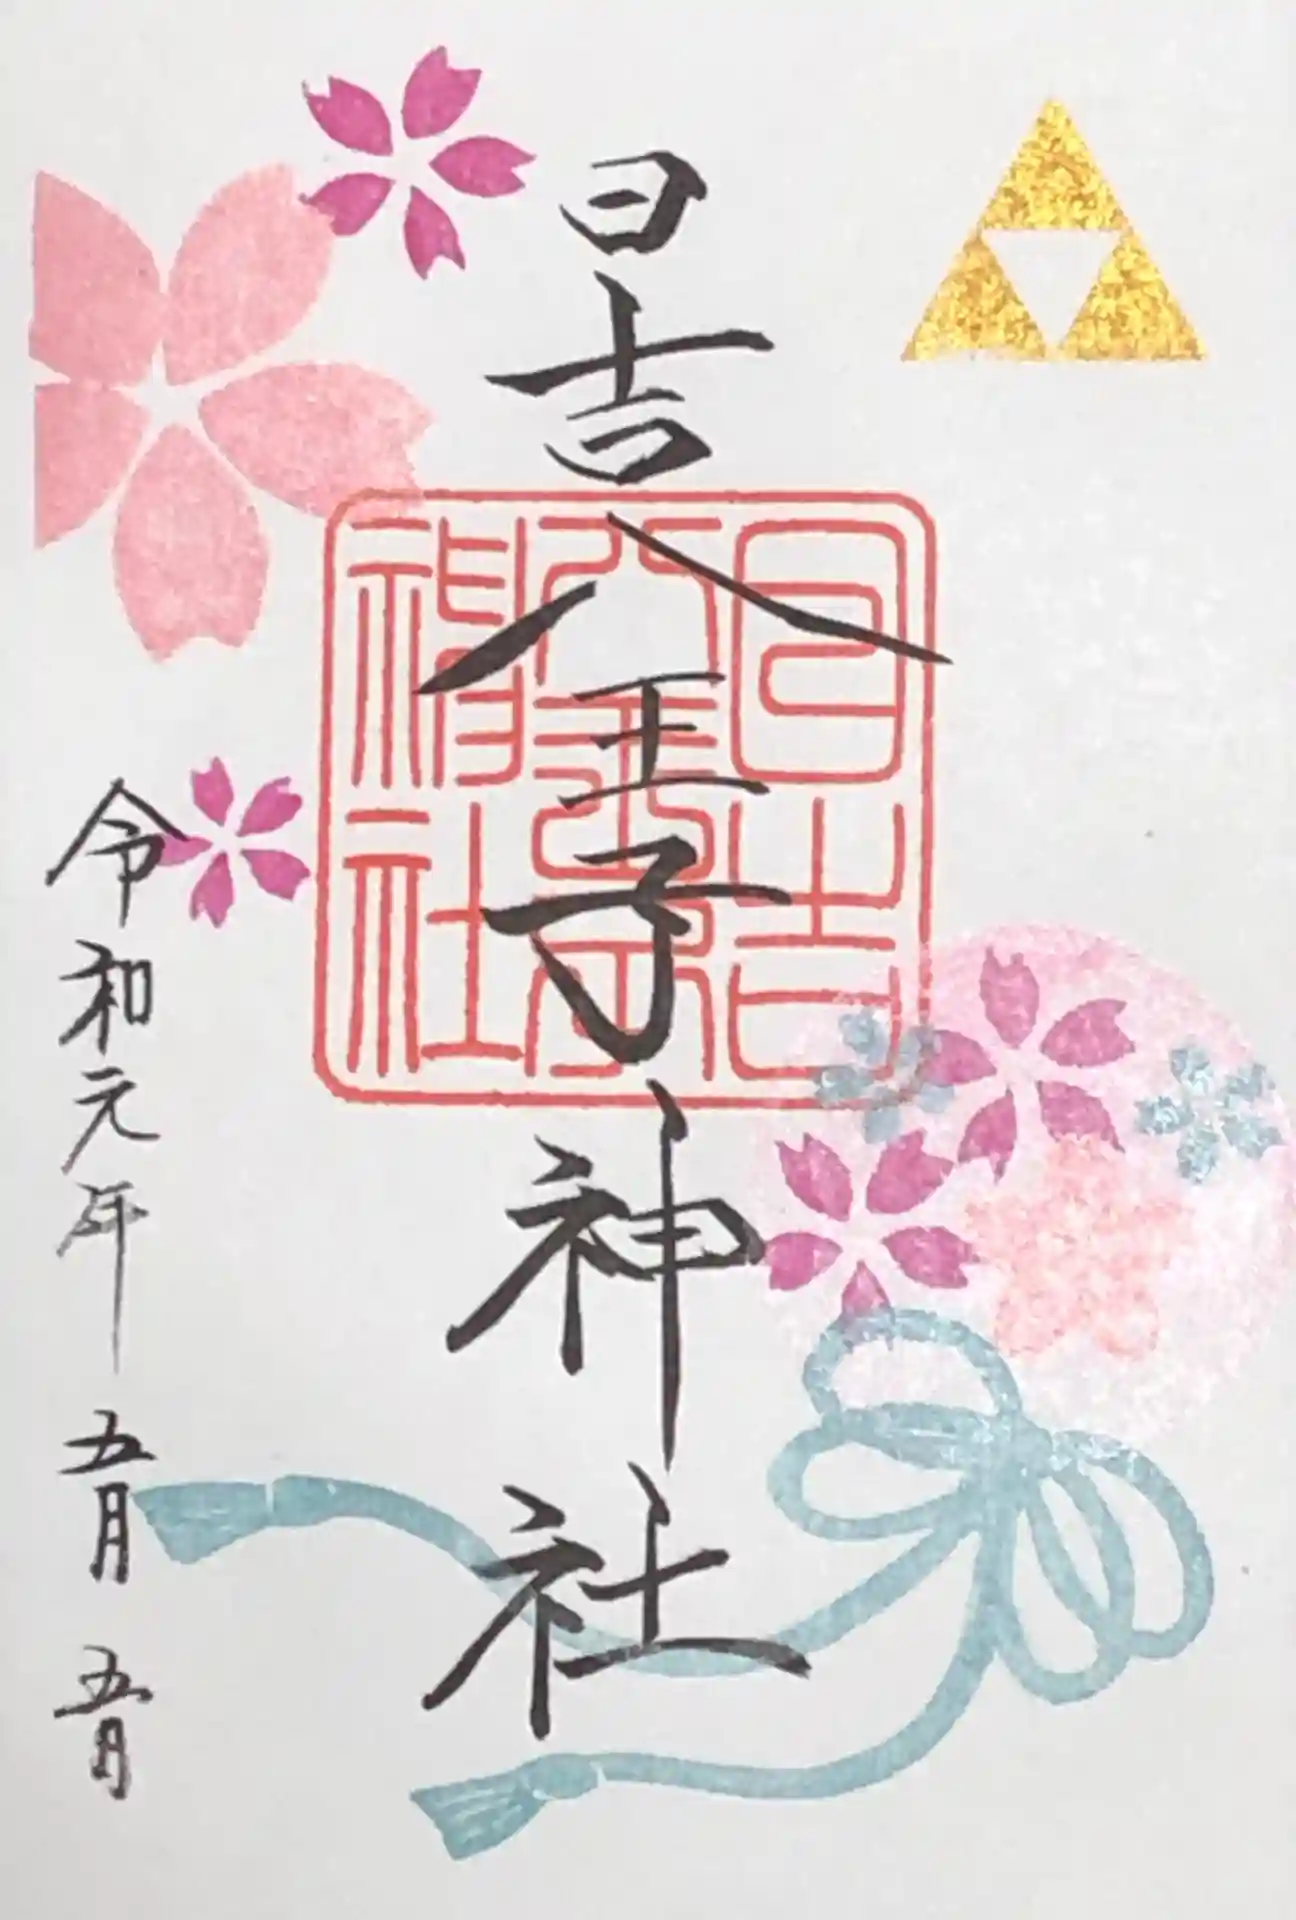 日吉八王子神社
日吉
八王子
神社
令和元年五月五日